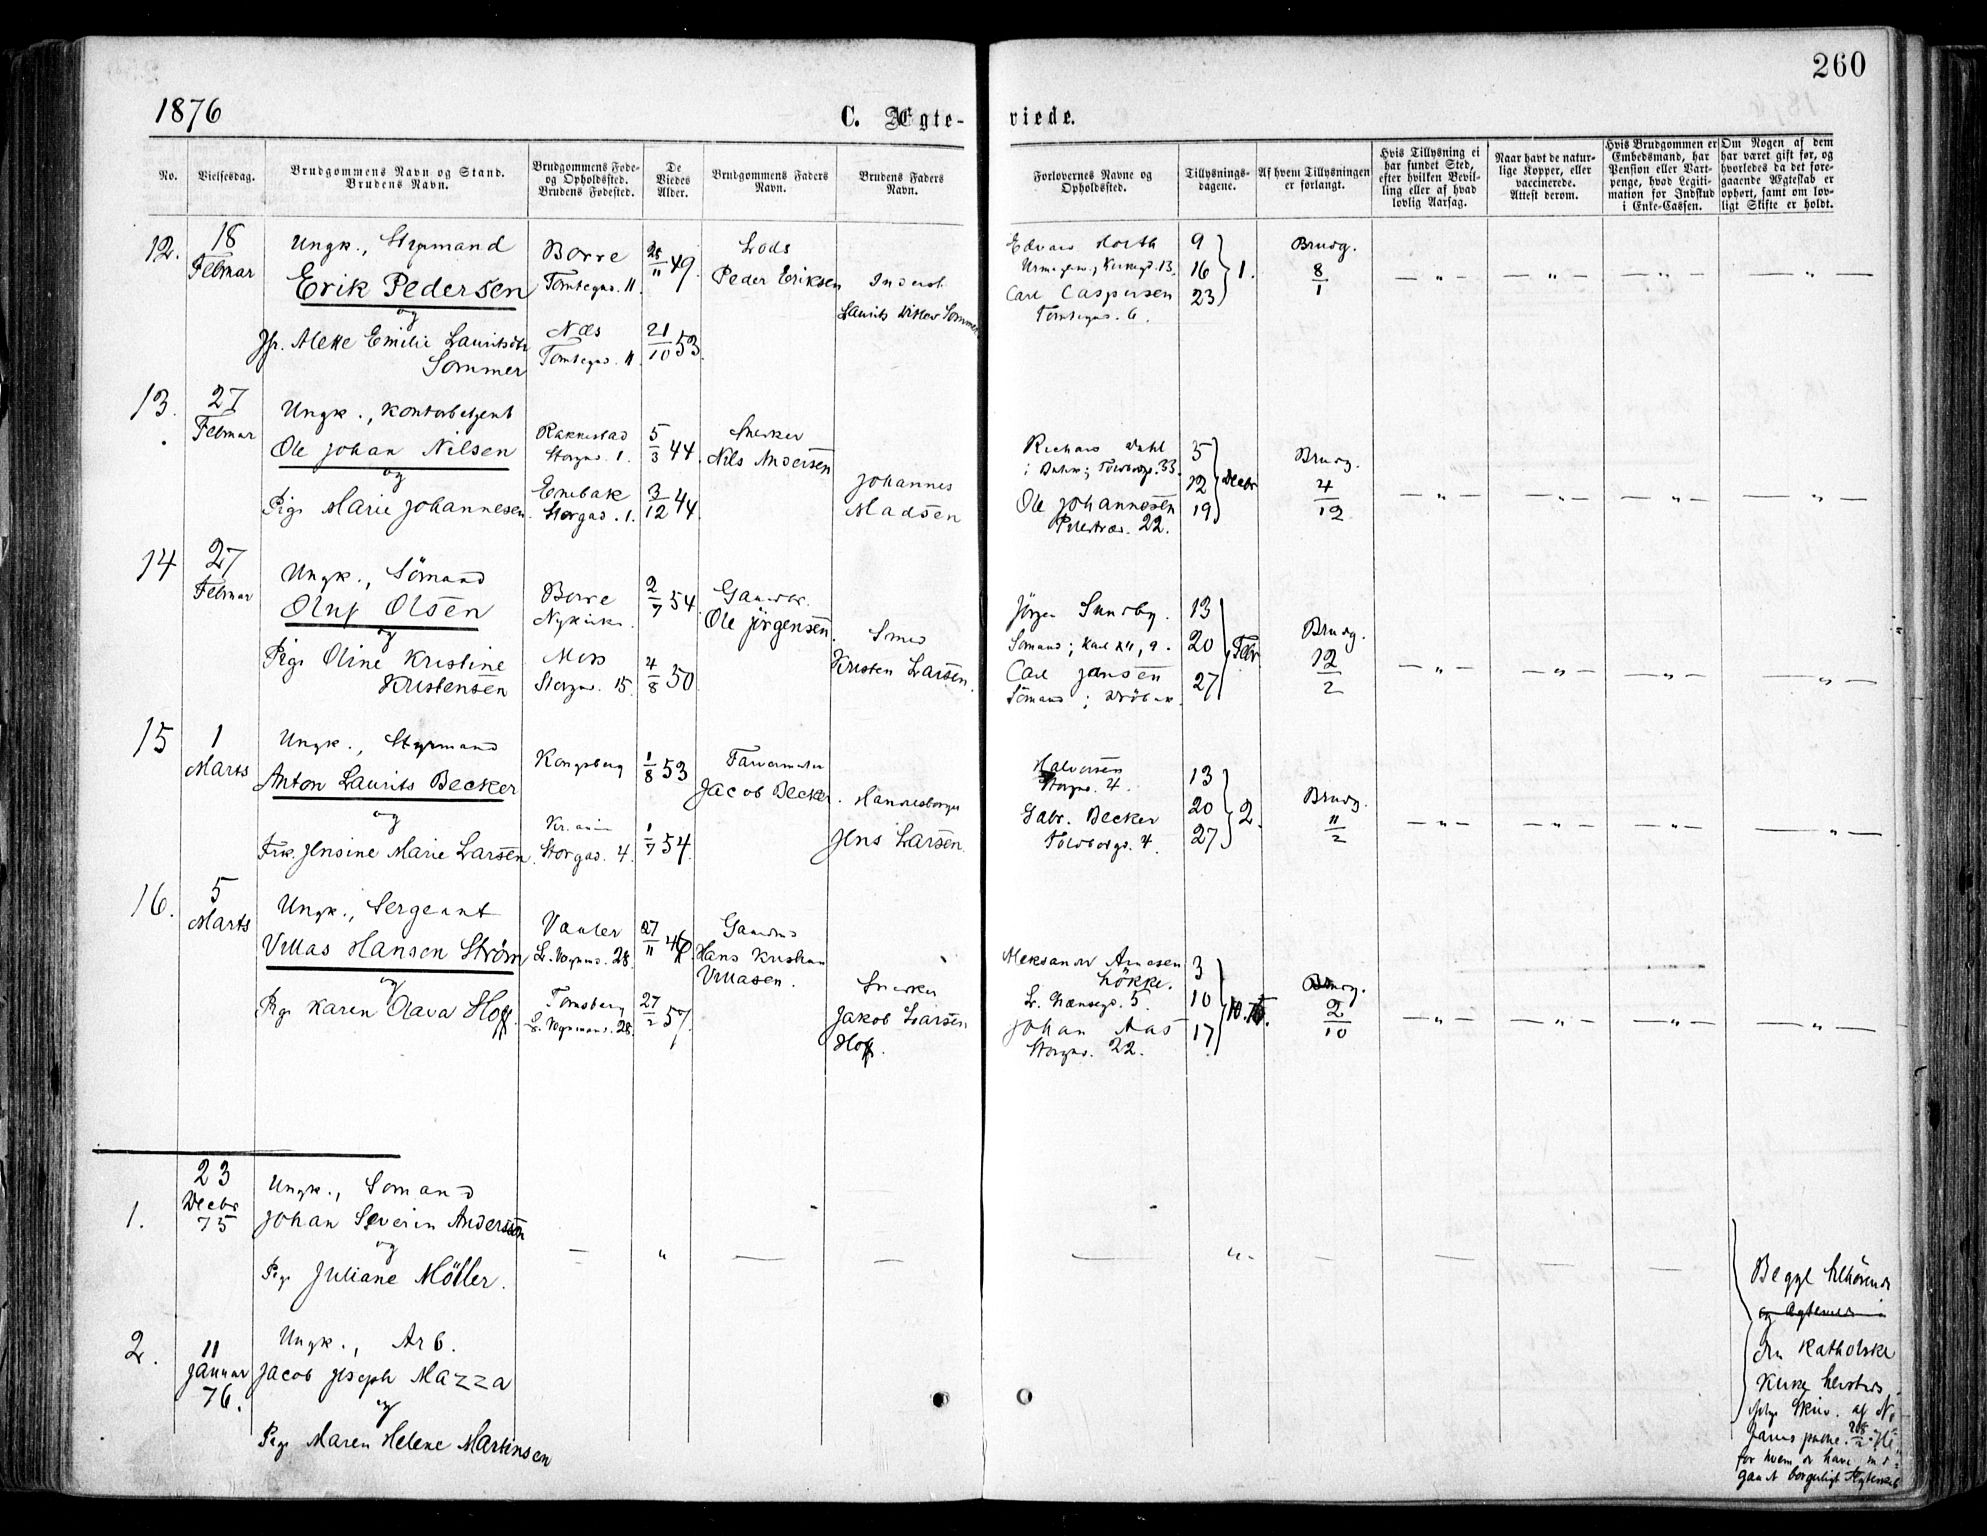 260
1876
C. Ægte-
viede.
No.
Vielsesdag.
Brudgommens Navn og Stand.
Brudens Navn.
Brudgommens Føde-
og Opholdssted.
Brudens Fødested.
De
Viedes
Alder.
Brudgommens Faders
Navn.
Brudens Faders
Navn.
Forlovernes Navne og
Opholdssted.
Tillysnings-
dagene.
Af hvem Tillysningen
er forlangt.
Hvis Tillysning ei
har fundet Sted,
efter hvilken Bevil-
ling eller af hvad
lovlig Aarsag.
Naar havt de natur-
lige Kopper, eller
vaccinerede.
Attest derom.
Hvis Brudgommen er
Embedsmand, har
Pension eller Vart-
penge, hvad Legiti-
mation for Indskud
i Enke-Cassen.
Om Nogen af dem
har været gift før, og
hvorledes da det fore-
gaaende Ægteskab er
ophørt, samt om lov-
ligt Skifte er holdt.
12.
18
Februar
Ungk., Styrmand
Erik Pedersen
og
Emilie Lauritsdtr
Sommer
Borre
Tomtegd. 11.
Næs
Tomtegd. 11.
28/11 49.
21/10 53.
Lods
Peder Eriksen
Laurits Sommer
Edvard
Kirkegd. 13.
Carl Caspersen
Tomtegd. 6.
9
16
23
1.
Brudg.
8/1
13.
27
Februar
Ungk., Kontorbetjent
Ole Johan Nilsen
og
Pige Marie Johannesen
Rakkestad
Storgd. 1.
Enebak
Storgad. 1.
5/3 44.
3/12 44.
Snekker
Nils Andersen
Johannes
Madsen
Richard Dahl
33.
Ole Johannesen
Pilestræd. 22.
5
12
19
Decbr
Brudg.
4/12
14
27
Februar
Ungk., Sömand
Oluf Olsen
og
Pige Oline Kristine
Kristensen
Borre
Nykirke.
Moss
Storgad. 15.
2/7 54.
4/8 50
Gaardbr.
Ole Jörgensen
Smed
Kristen Larsen.
Jörgen Sundby.
Sömand; Karl XII, 9.
Carl Jansen
Sömand; Dröbak.
13
20
27
Febr.
Brudg.
12/2
15
1
Marts
Ungk., Styrmand
Anton Laurits Becker
og
Frk. Jensine Marie Larsen
Kongsberg
Kr.ania
Storgad. 4.
1/8 53
1/7 54.
Farvermester
Jacob Becker.
Handelsborger
Jens Larsen.
Halvorsen
Storgad. 4.
Gabr. Becker
Toldbodgd. 4.
13
20
27
2.
Brudg.
11/2
16.
5
Marts
Ungk., Sergeant
Villas Hansen Ström
og
Pige Karen Olava Hoff.
Vaaler
L. Vognmd. 28.
Tönsberg
L. Vognmand. 28.
27/11
27/2 57.
Gaardbr.
Hans Kristian
Villasen.
Snekker
Jakob Larsen
Hoff.
Aleksander Arnesen
Lökke.
5.
Johan Aas
Storgad. 22.
3
10
17
10.75.
Brudg.
2/10
1.
23
Decbr
75
Ungk., Sömand
Johan Severin Andersen
og
Pige Juliane Möller.
2.
11
Januar
76.
Ungk., Arb.
Jacob Joseph Mazza
og
Pige Maren Helene Martinsen
Begge tilhörende
den Katholske
Kirke
ifölge Skriv. af
for hvem de have ind-
gaaet borgerligt Ægteskab